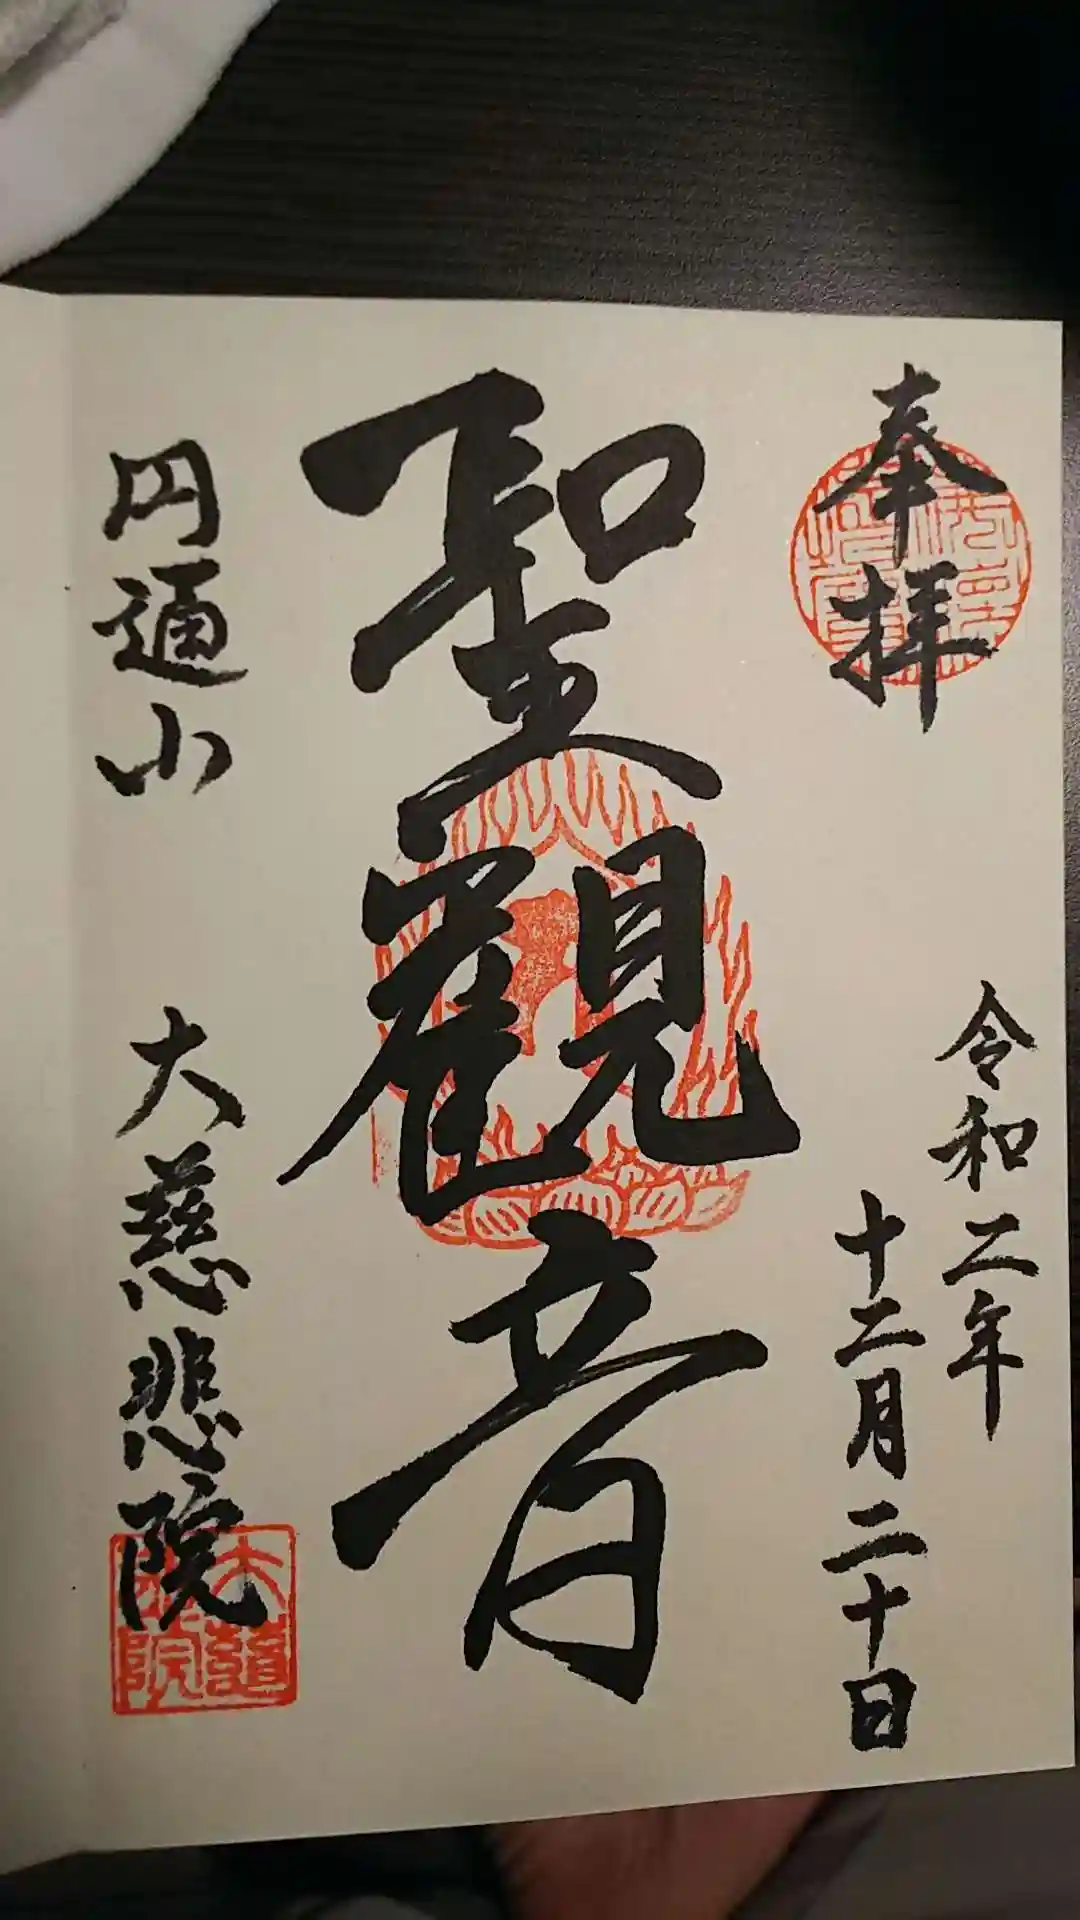 奉拝
令和二年
十二月二十日
聖觀音
円通山
大慈悲院
大慈悲院